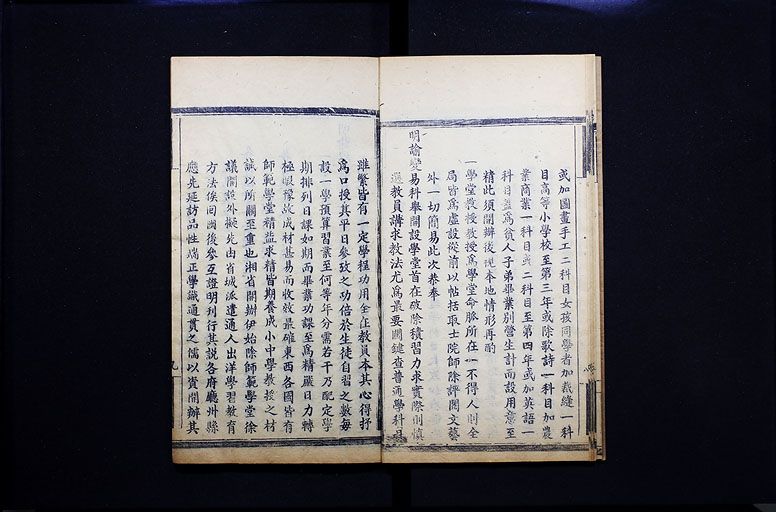 或加圖畫手工二科目女孩同學者加裁縫一科
目高等小學校至第三年或除歌詩一科目加農
業商業一科目或二科目至第四年或加英語一
科目蓋為貧人子弟畢業別營生計而設用意至
精此須開辦後視本地情形再酌
一學堂教授教授為學堂命脈所在一不得人則全
局皆為虛設從前以帖括取士院師除評閱文藝
外一切簡易此次恭奉
明諭變易科舉開設學堂首在破除積習力求實際則慎
選教員講求教法尤為最要關鍵查普通學科
雖繁皆有一定學程功用全在教員本其心得抒
為口授其平日參攷之功倍於生徒自習之數每
設一學預算習業至何等年分需若干乃配定學
期排列日課如期而畢業功課至為精嚴日力轉
極暇豫故成材甚易而收效最確東西各國皆有
師範學堂精益求精皆期養成小中學教授之材
誠以所關至重也湘省開辦伊始除師範學堂徐
議開設外擬先由省城派遣通人出洋學習教育
方法俟回國後參互證明刊行其說各府廳州縣
應先延訪品性端正學識通貫之儒以資開辦其